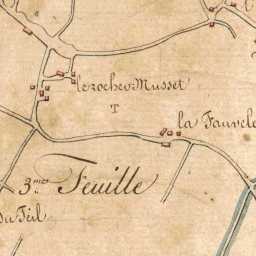 le rocher Musset
T
la Fauvele
3.me Feuille
du Teil